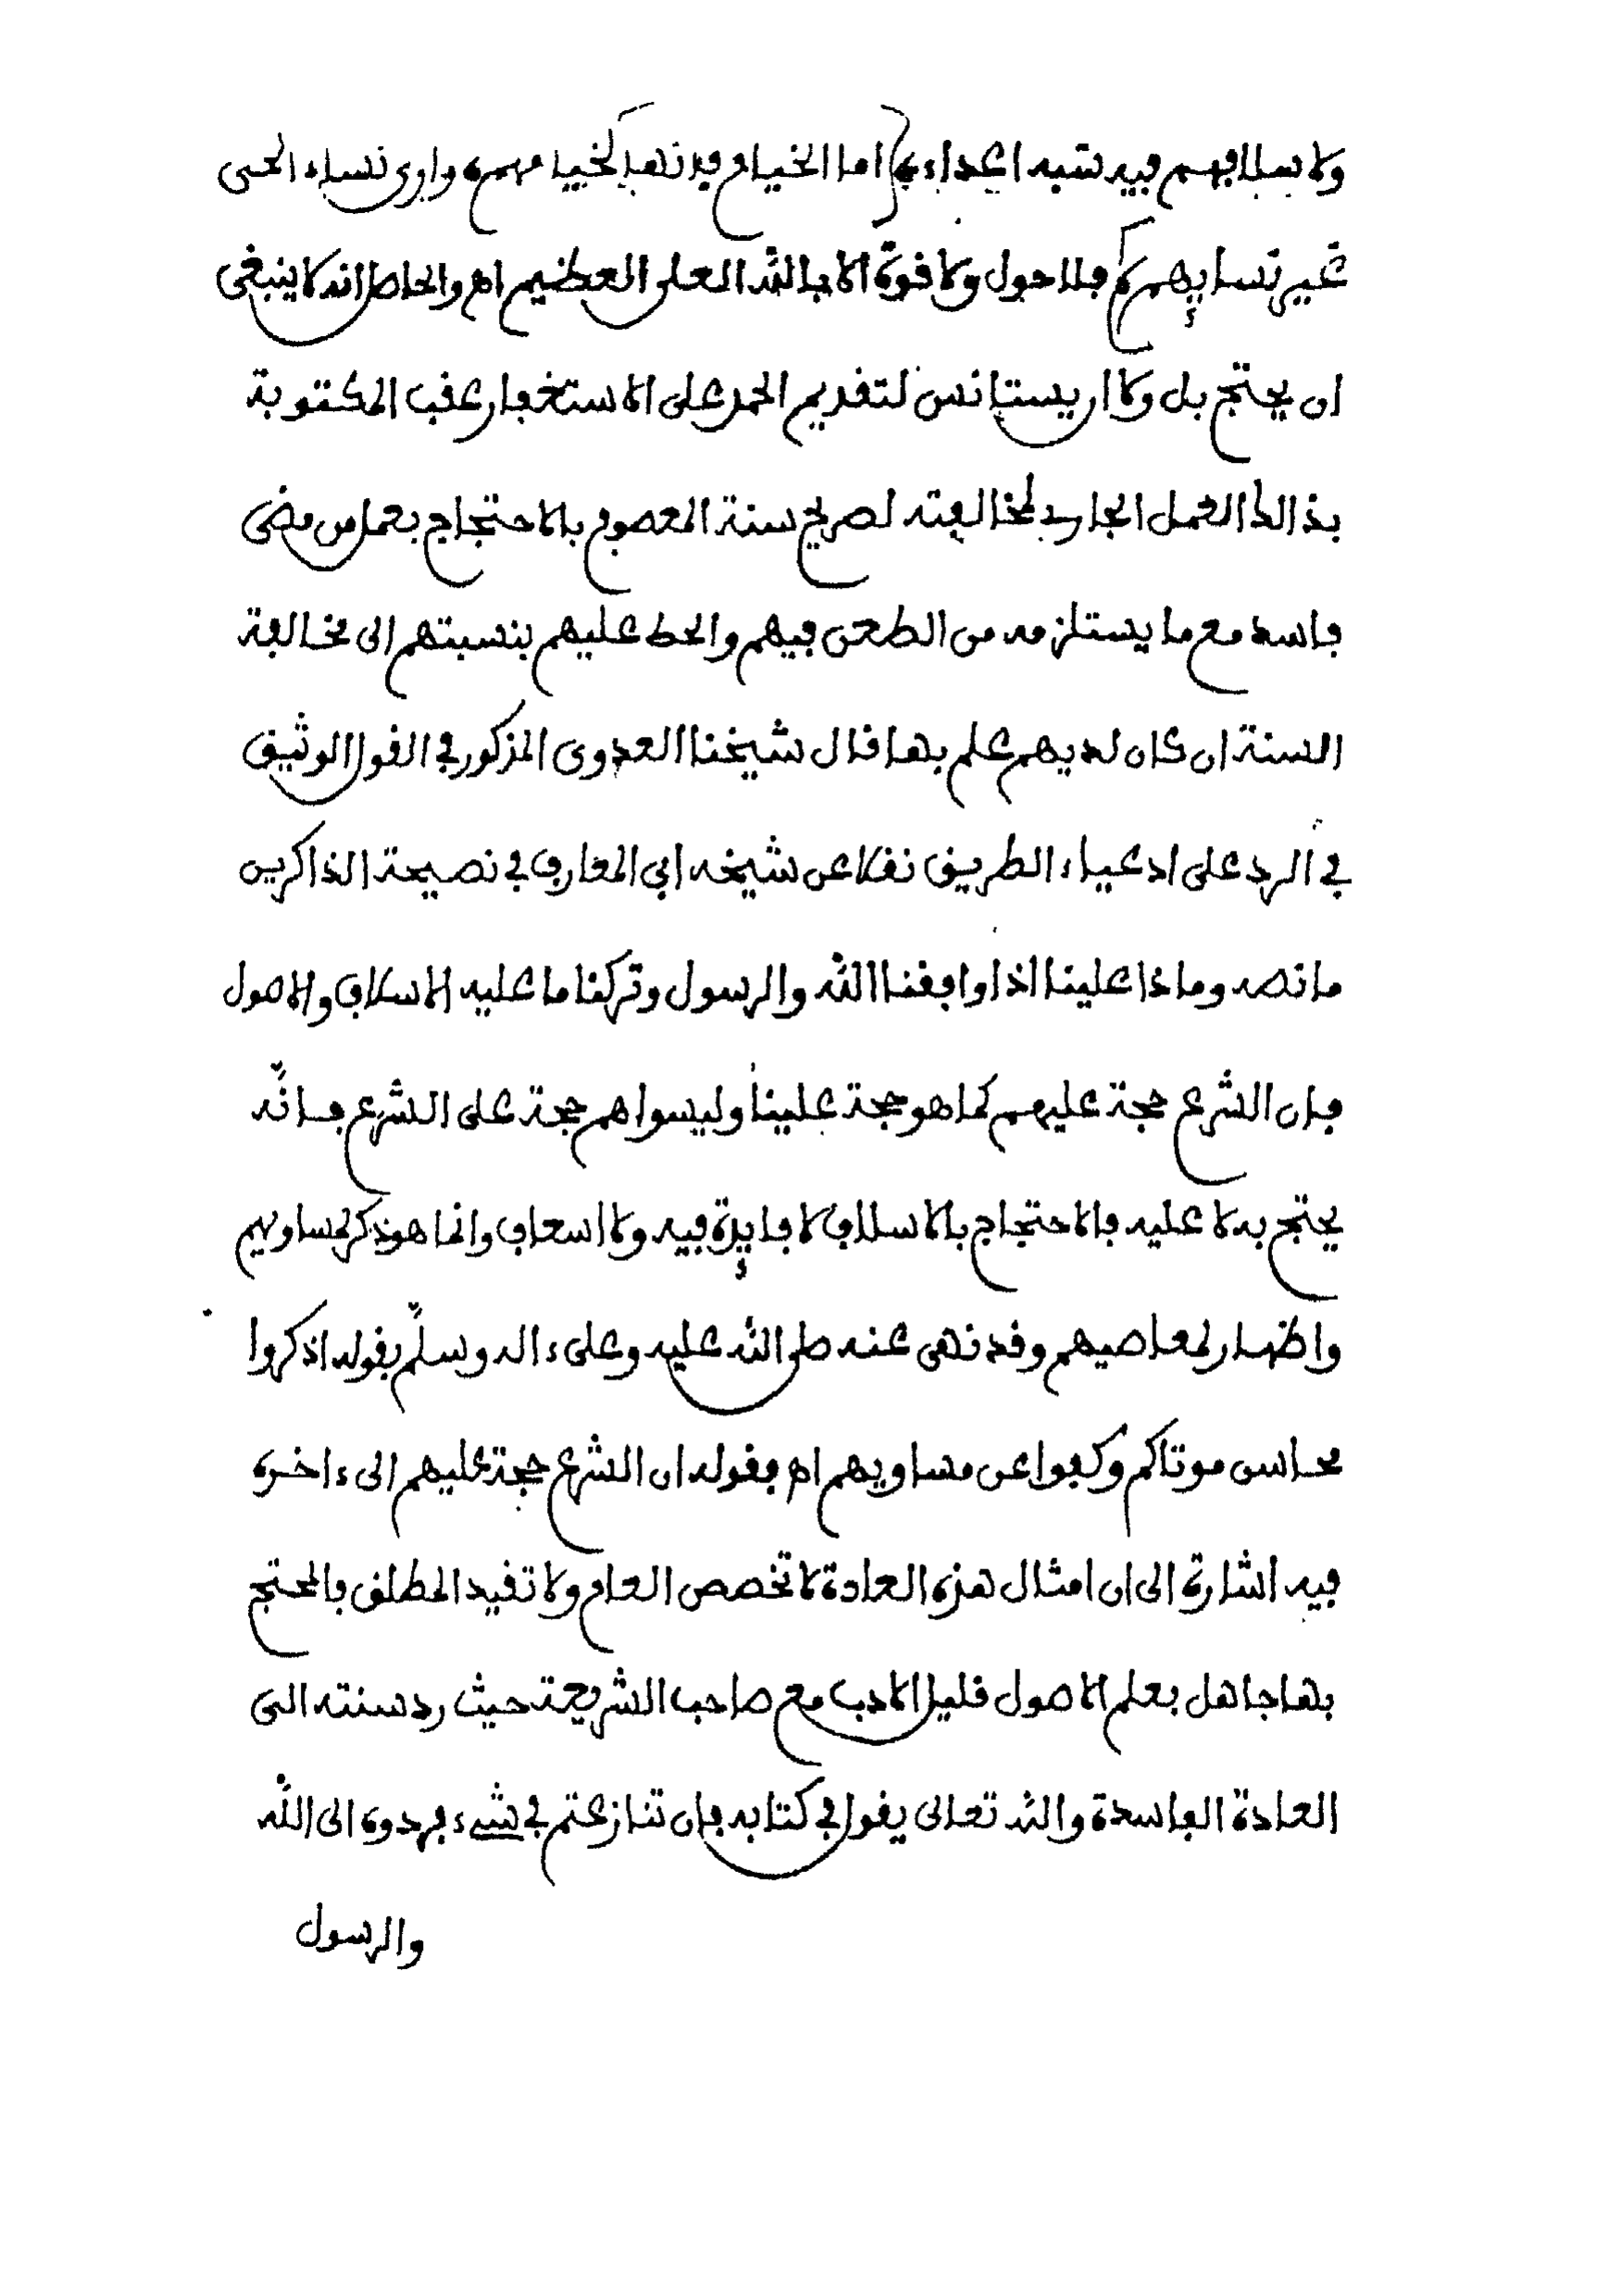 ولاسلافهم فيه شبه اعداءه اما الخيام فإنها كخيامهم وارى نساء الحى
غير نسايهم فلا حول ولا قوة الا بالله العلى العظيم اه والحاصل انه لا ينبغى
ان يحتج بل ولا ان يستانس لتقديم الحمد على الاستغفار عقب المكتوبة
بذالك العمل الجارى لمخالفته لصريح سنة المعصوم فالاحتجاج بعمل من مضى
فاسد مع ما يستلزمه من الطعن فيهم والحط عليهم بنسبتهم الى مخالفة
السنة ان كان لديهم علم بها قال شيخنا العدوى المذكور في القول الوثيق
في الرد على ادعياء الطريق نقلا عن شيخه ابي المعارف في نصيحة الذاكرين
ما نصه وماذا علينا اذا وافقنا الله والرسول وتركنا ما عليه الاسلاف والاصول
فإن الشرع حجة عليهم كما هو حجة علينا وليسوا هم حجة على الشرع فانّه
يحتج به لا عليه فالاحتجاج بالاسلاف لا فايدة فيه ولا اسعاف وانما هو ذكر لمساويهم
واظهار لمعاصيهم وقد نهى عنه صلى الله عليه وعلى ءاله وسلّم بقوله اذكروا
محاسن موتاكم وكفوا عن مساويهم اه فقوله ان الشرع حجة عليهم الى ءاخره
فيه اشارة الى ان امثال هذه العادة لا تخصص العام ولا تقيد المطلق فالمحتج
بها جاهل بعلم الاصول قليل الادب مع صاحب الشريعة حيث رد سنته الى
العادة الفاسدة والله تعالى يقول في كتابه فإن تنازعتم في شىء فردوه الى الله
والرسول